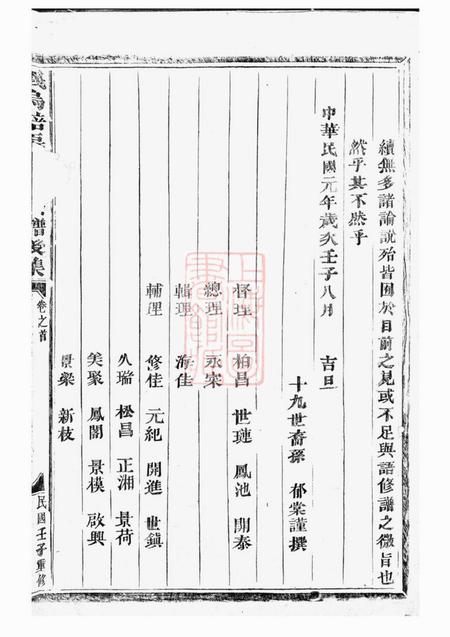 續無多諸論說殆皆囿於目前之見或不足與語修譜之微旨也
然乎其不然乎
中華民國元年歲次壬子八月 吉旦
十九世裔孫 郁棠謹撰
督理 柏昌 世璉 鳳池 開泰
總理 永案
輯理 海佳
輔理 修佳 元紀 開進 世鎮
久瑞 松昌 正湘 景荷
美聚 鳳閣 景模 啟興
景梁 新枝
譜後集 卷之首
民國壬子重修